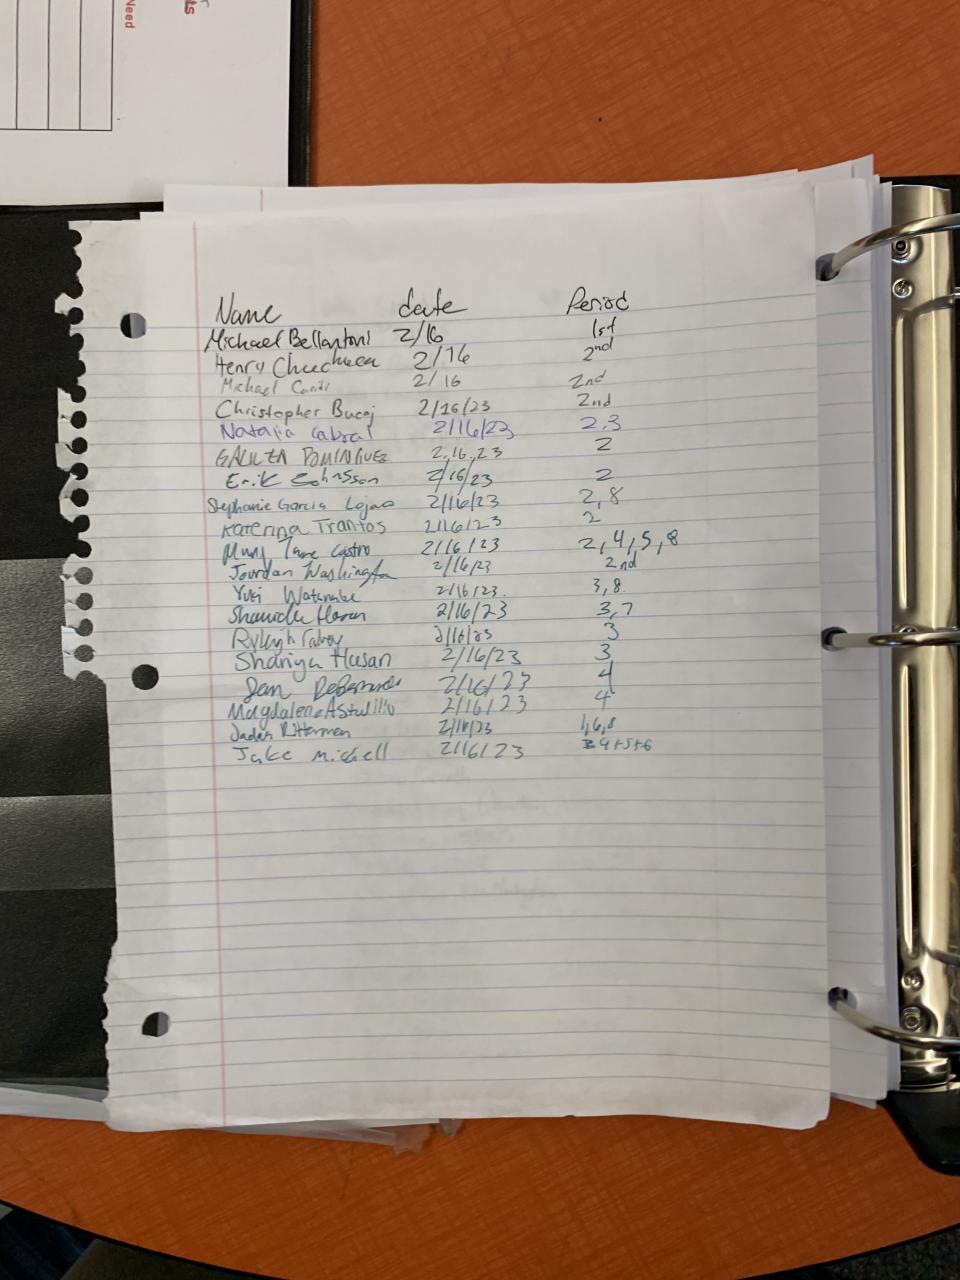 Need
ts
Name date Period
Michael Bellantoni 2/16 1st
Henry 2/16 2nd
Michael 2/16 2nd
Christopher Bucaj 2/16/23 2nd
Natalia Cabral 2/16/23 2,3
DOMINGUEZ 2.16.23 2
Erik Johnsson 2/16/23 2
Stephanie Garcia Lojano 2/16/23 2,8
Katerina Trantos 2/16/23 2
Castro 2/16/23 2,4,5,8
Jourdan Washington 2/16/23 2nd
Yuki Watanabe 2/16/23. 3,8.
2/16/23 3,7
Ryleigh 2/16/23 3
Shaniya Hasan 2/16/23 3
2/16/23 4
Magdalena Astudillo 2/16/23 4
Jaden Ritterman 2/16/23 1,6,8
Jake Michell 2/16/23 4+5+6